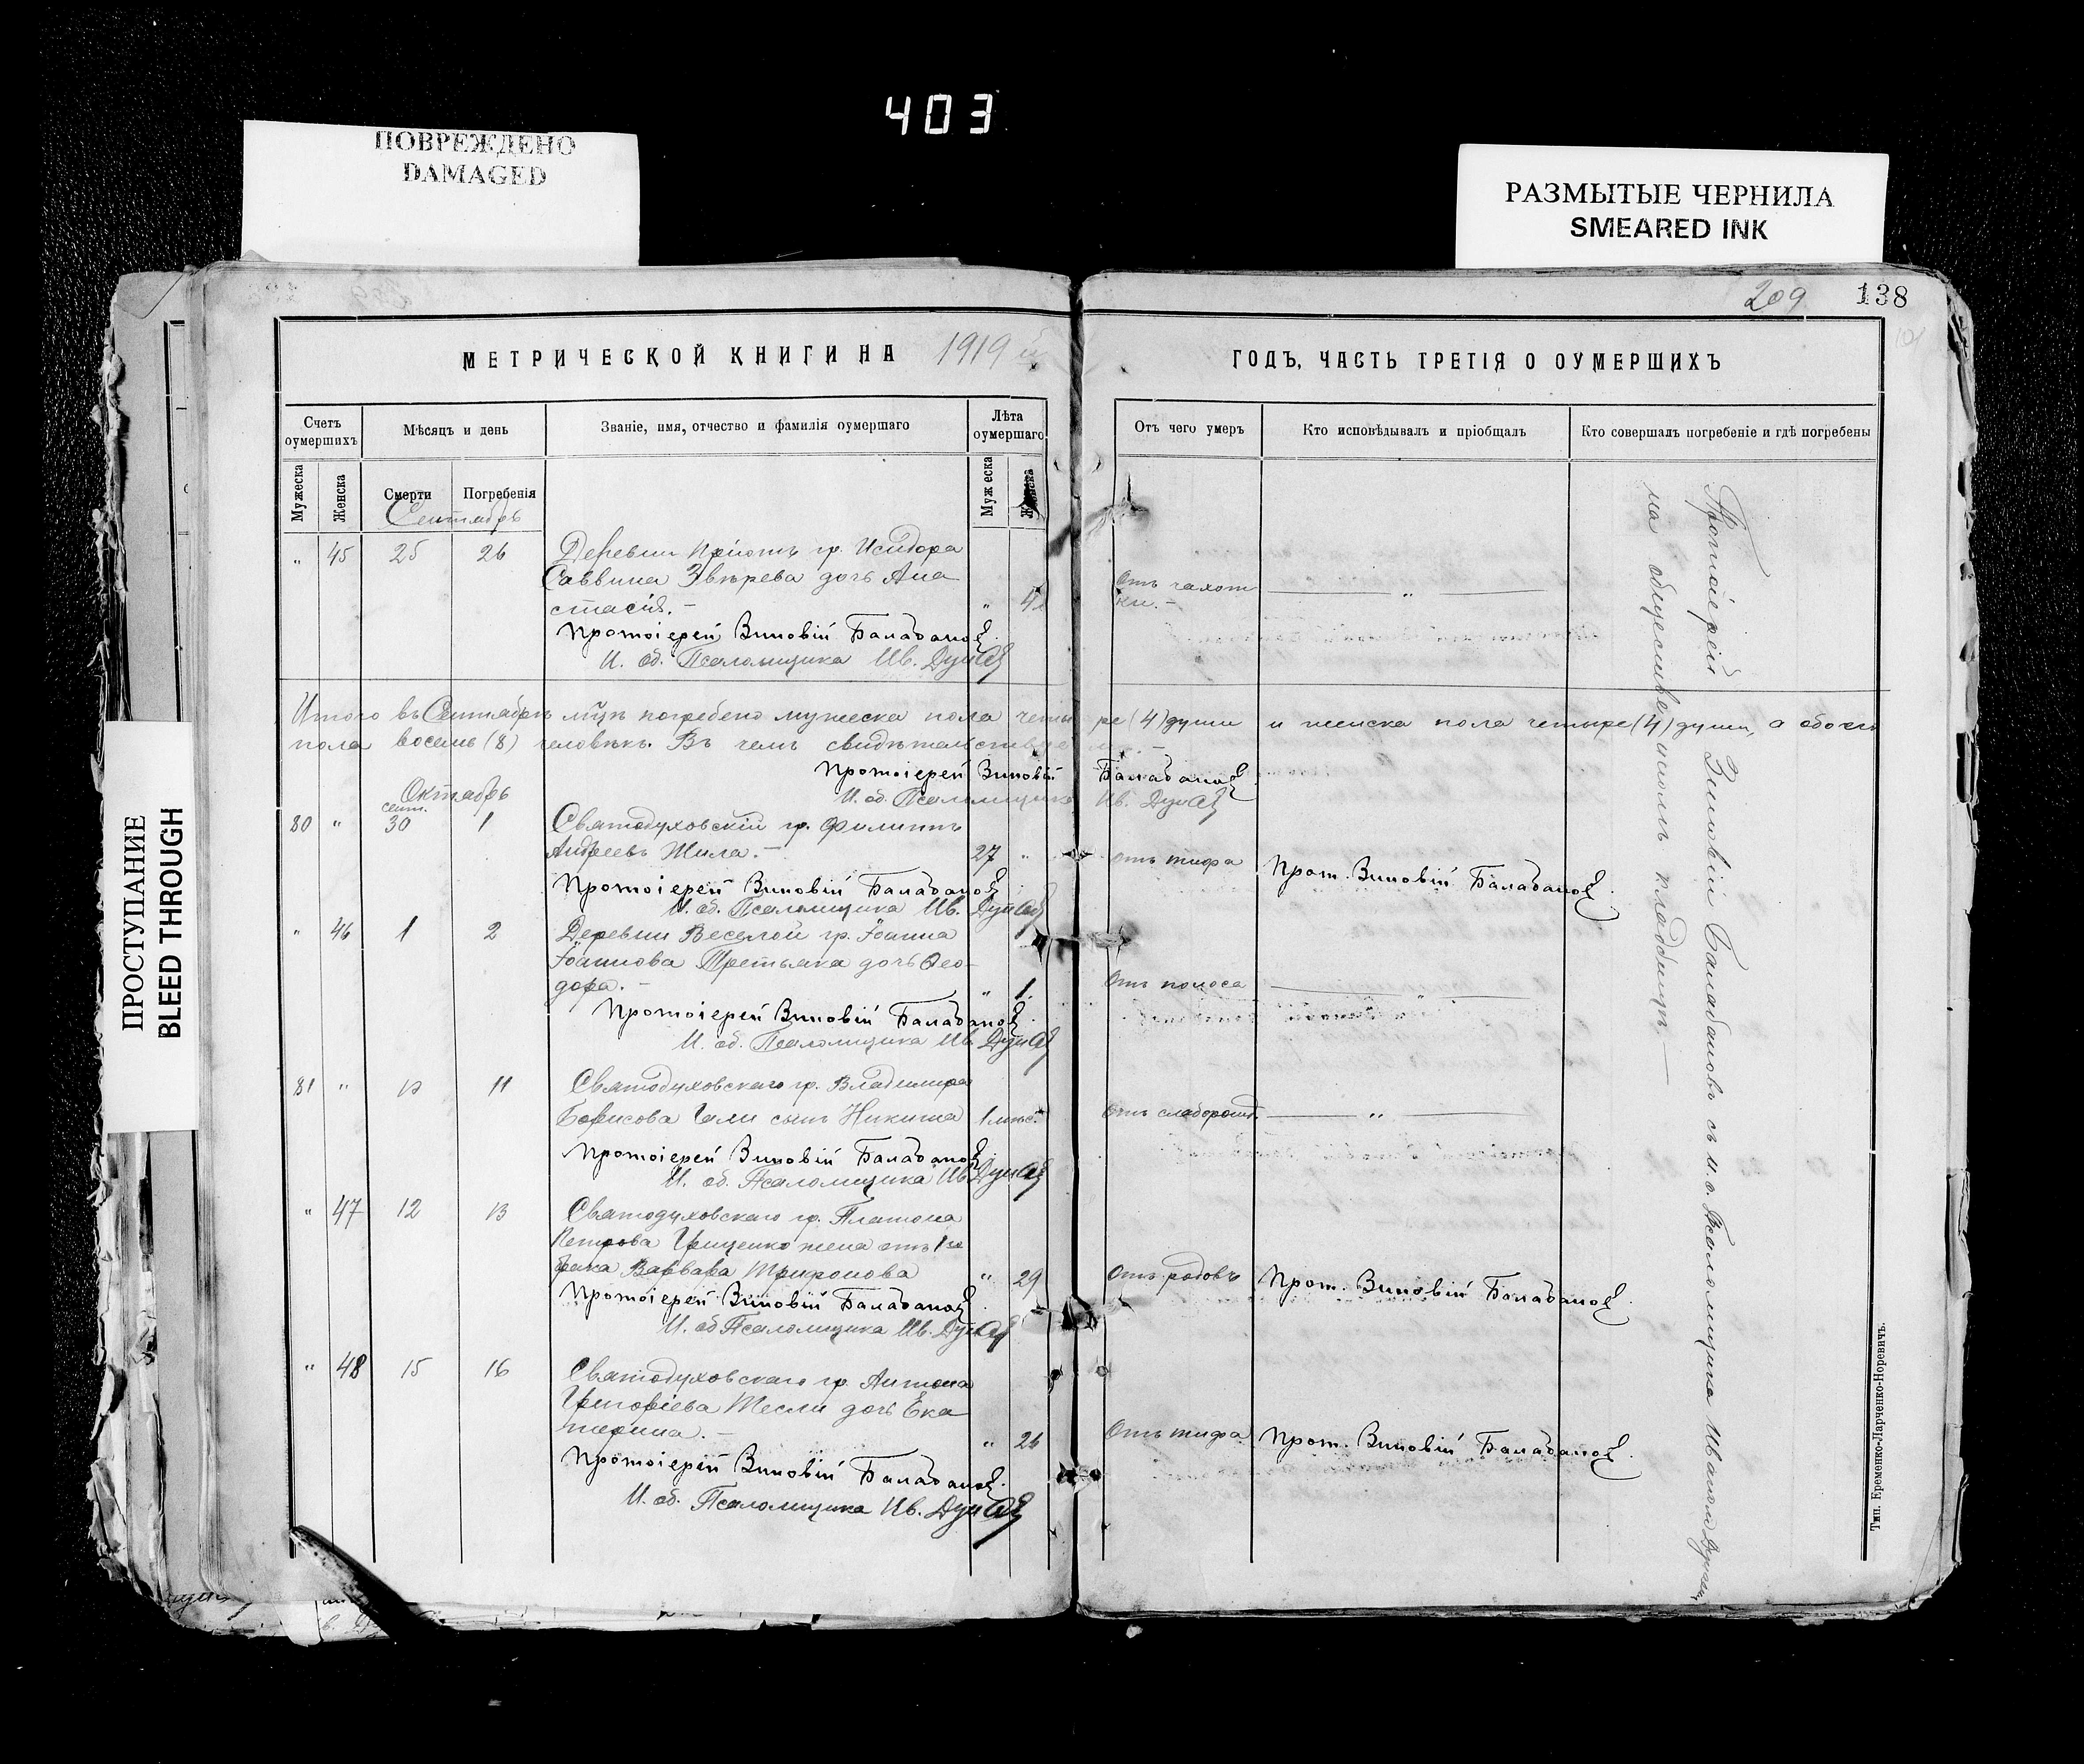 403
ПОВРЕЖДЕНО
DAMAGED
РАЗМЫТЫЕ ЧЕРНИЛА
SMEARED INK
ПРОСТУПАНИЕ
BLEED THROUGH
209 138
МЕТРИЧЕСКОЙ КНИГИ НА 1919 й
Счетъ оумершихъ
Мѣсяцъ и день
Званіе, имя, отчество и фамилія оумершаго
Лѣта оумершаго
Мужеска
Женска
Смерти
Погребенія
Мужеска
Женска
Сентябрь
" 45 25 26 Деревни Пріютъ гр. Исидора
Саввина Звѣрева дочь Ана
стасія. - "
Протоіерей Зиновій Балабанов
И. об. Псаломщика Ив.
Итого въ Сентябрѣ м҃цѣ погребено мужеска пола четы
пола восемь (8) человѣкъ. Въ чемъ
Протоіерей Зиновій
И. об. Псаломщика
Октябрь
сент.
80 " 30 1 Святодуховскій гр. Филиппъ
Андреевъ Шила. - 27 "
Протоіерей Зиновій Балабанов
И. об. Псаломщика Ив.
" 46 1 2 Деревни Веселой гр. Іоанна
Іоаннова Третьяка дочь Ѳео-
дора. - " 1.
Протоіерей Зиновій Балабанов
И. об. Псаломщика Ив.
81 " 10 11 Святодуховскаго гр. Владимира
Борисова сынъ Никита 1 мѣс.
Протоіерей Зиновій Балабанов
И. об. Псаломщика Ив.
" 47 12 13 Святодуховскаго гр. Платона
Петрова Грищенко жена отъ 1го
брака Варвара Трифонова " 29
Протоіерей Зиновій Балабанов
И. об Псаломщика Ив.
" 48 15 16 Святодуховскаго гр. Антона
Григоріева Тесли дочь Ека
терина. - " 26
Протоіерей Зиновій Балабанов
И. об. Псаломщика Ив.
ГОДЪ, ЧАСТЬ ТРЕТІЯ О ОУМЕРШИХЪ
Отъ чего умеръ
Кто исповѣдывалъ и пріобщалъ
Кто совершалъ погребеніе и гдѣ погребены
Отъ чахот
ки. - "
ре (4) души и женска пола четыре (4) души, а обоего
Балабанов
Ив.
отъ тифа Прот. Зиновій Балабанов
Отъ поноса "
Отъ "
Отъ родовъ Прот. Зиновій Балабанов
Отъ тифа Прот. Зиновій Балабанов
Протоіерей Зиновій Балабановъ съ и. о. Псаломщика Иваном
на общественномъ кладбищѣ. -
Тип. Еременко-Ларченко-Норевичъ.